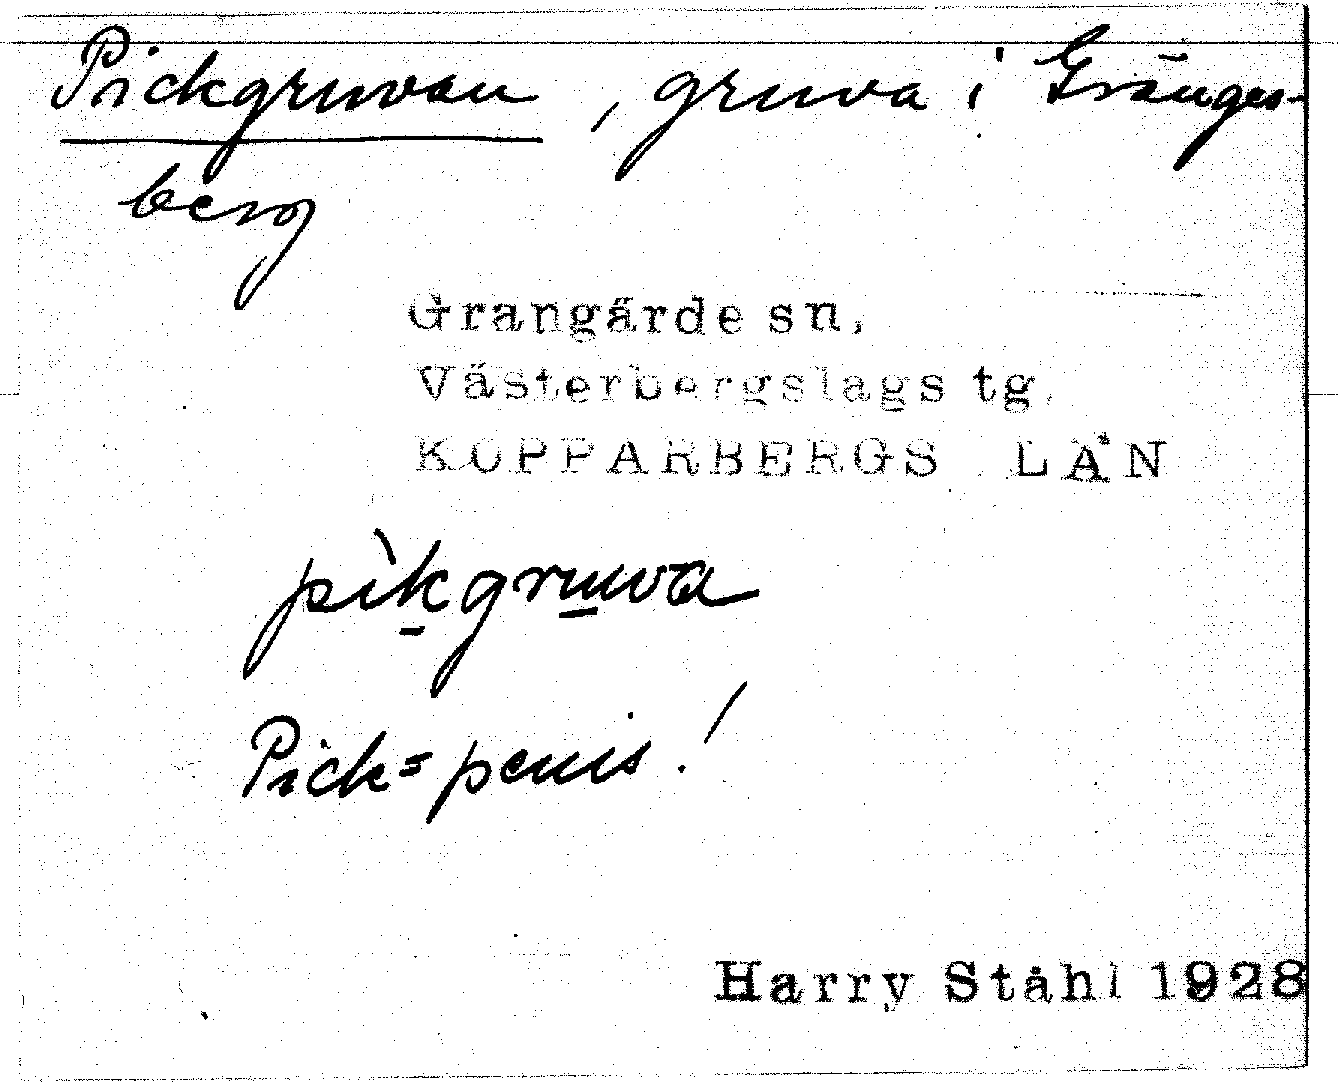 Pickgruvan, gruva i Gränges-
berg
Grangärde sn,
Västerbergslags tg.
KOPPARBERGS LÄN
pìkgruva
Pick = penis!
Harry Ståhl 1928